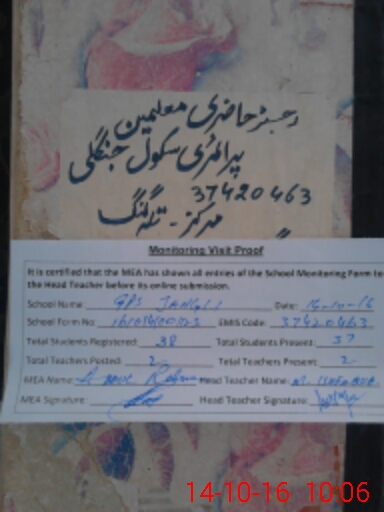 رجسٹر حاضری معلمین
پرائمری سکول جنگلی
37420463
مرکز - تلہ گنگ
Monitoring Visit Proof
It is certified that the MEA has shown all entries of the School Monitoring Form to
the Head Teacher before its online submission.
School Name: GPS JANGLI Date: 14-10-16
School Form No: EMIS Code: 37420463
Total Students Registered: 38 Total Students Present: 37
Total Teachers Posted: 2 Total Teachers Present: 2
MEA Name: Rehman Head Teacher Name: M.
MEA Signature: Head Teacher Signature:
14-10-16 10:06